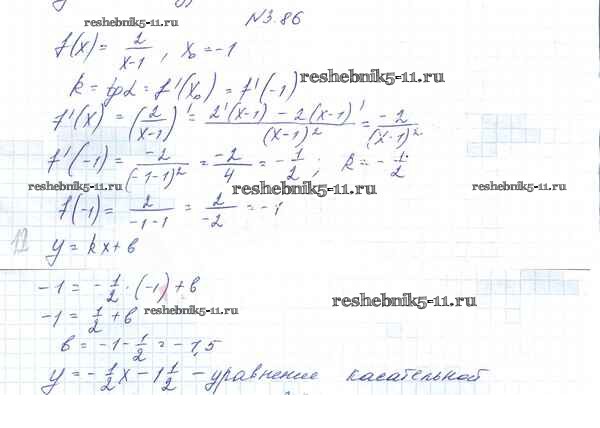 N 3.86
reshebnik5-11.ru
f(x) = 2/(x-1), x₀ = -1
k = tgα = f'(x₀) = f'(-1)
reshebnik5-11.ru
f'(x) = (2/(x-1))' = (2'(x-1) - 2(x-1)')/(x-1)² = -2/(x-1)²
f'(-1) = -2/(-1-1)² = -2/4 = -1/2; k = -1/2
reshebnik5-11.ru reshebnik5-11.ru reshebnik5-11.ru
f(-1) = 2/(-1-1) = 2/-2 = -1
12
y = kx + в
-1 = -1/2 · (-1) + в
reshebnik5-11.ru
-1 = 1/2 + в
reshebnik5-11.ru
в = -1 - 1/2 = -1,5
y = -1/2 x - 1 1/2 - уравнение касательной